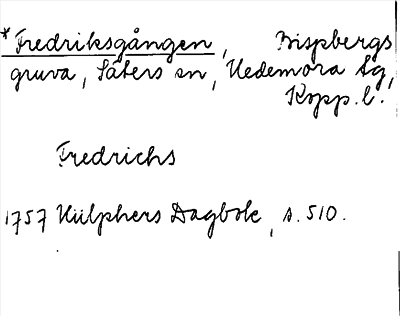 *Fredriksgången, Bispbergs
gruva, Säters sn, Hedemora tg,
Kopp. l.
Fredrichs
1757 Hülphers Dagbok, s. 510.